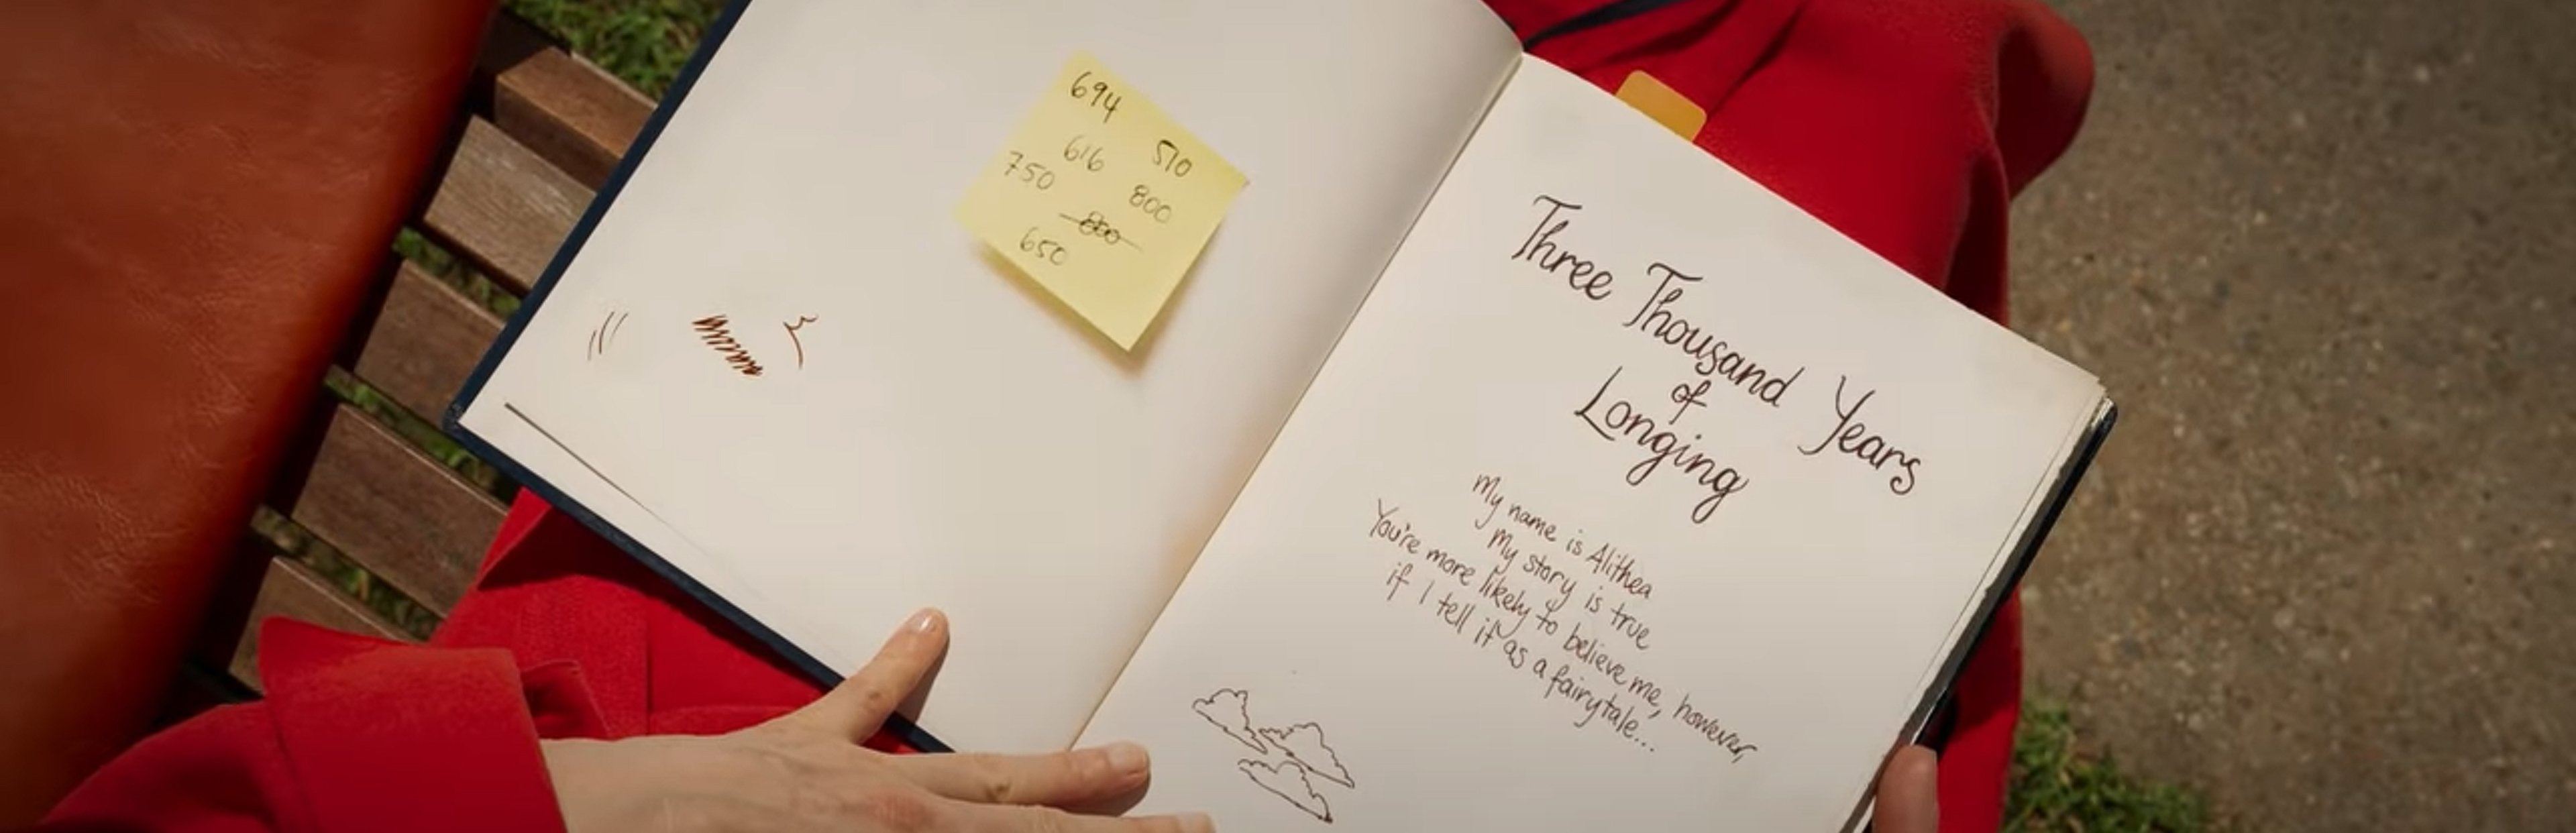 694
616 510
750 800
800
650
Three Thousand Years
of
Longing
My name is Alithea
My story is true
You're more likely to believe me, however,
if I tell it as a fairytale...